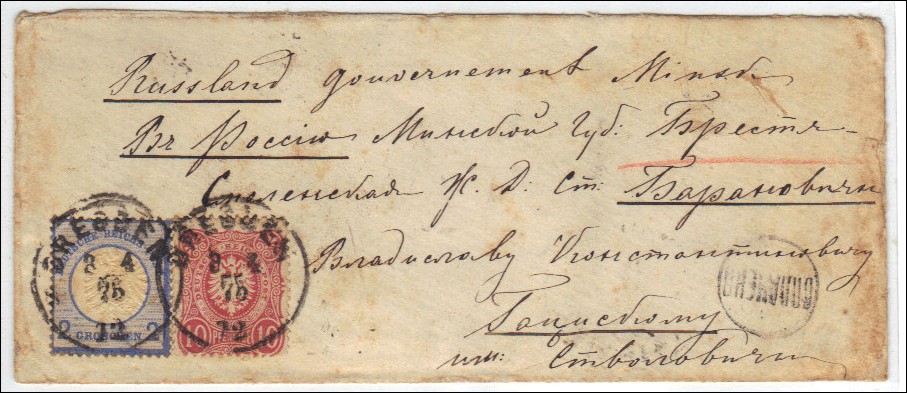 Russland gouvernement Minsk
Въ Россію Минской Губ: Брестъ-
Смоленская Ж. Д. Ст: Барановичи
Владиславу Константиновичу
им: Стволовичи
DRESDEN
3 4
75
12
DRESDEN
3 4
75
12
DEUTSCHE REICHS
2 GROSCHEN 2
10 10